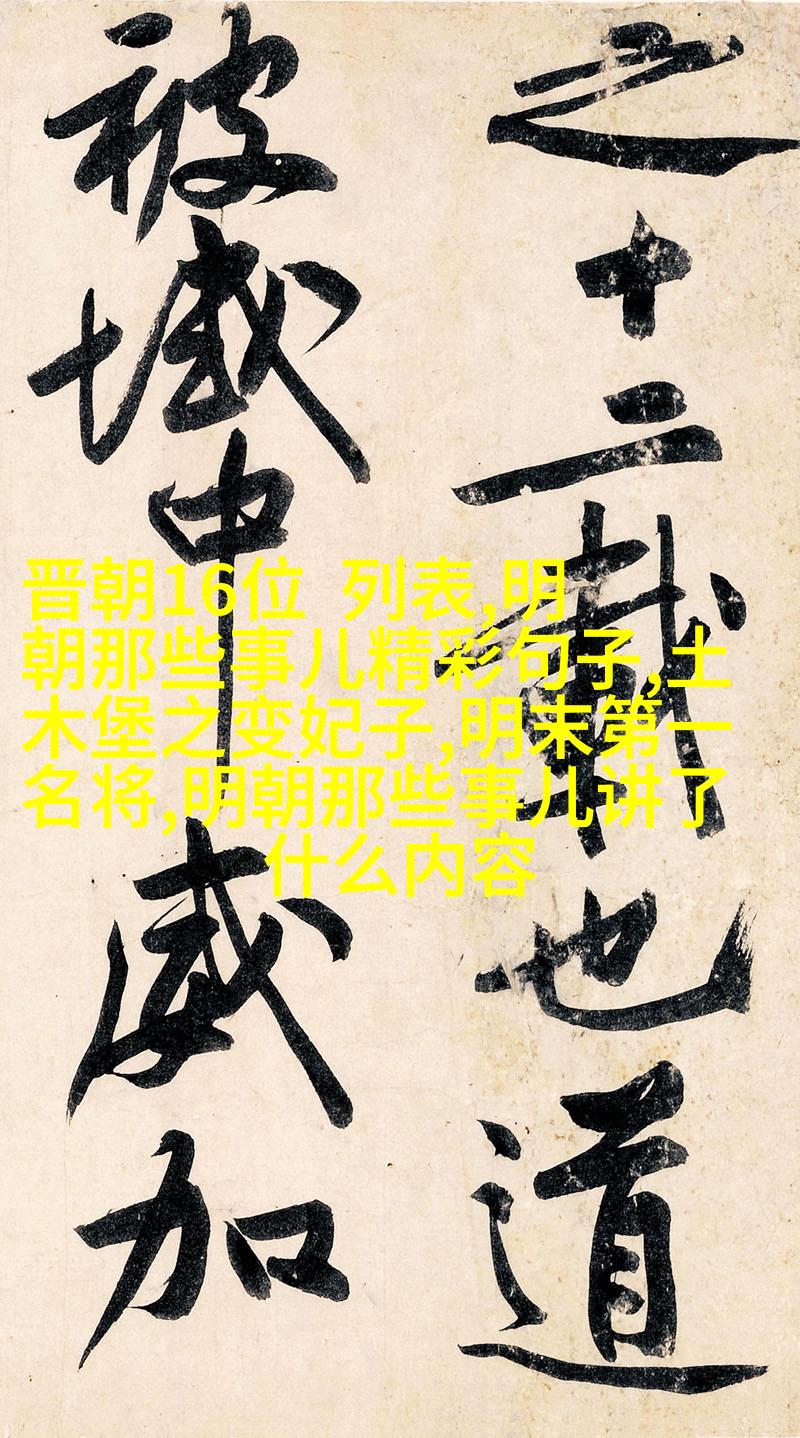 之十二载也道
被域中威加
晋朝16位 列表,明
朝那些事儿精彩句子,土
木堡之变妃子,明末第一
名将,明朝那些事儿讲了
什么内容